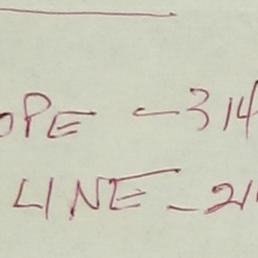 OPE - 314
LINE - 21